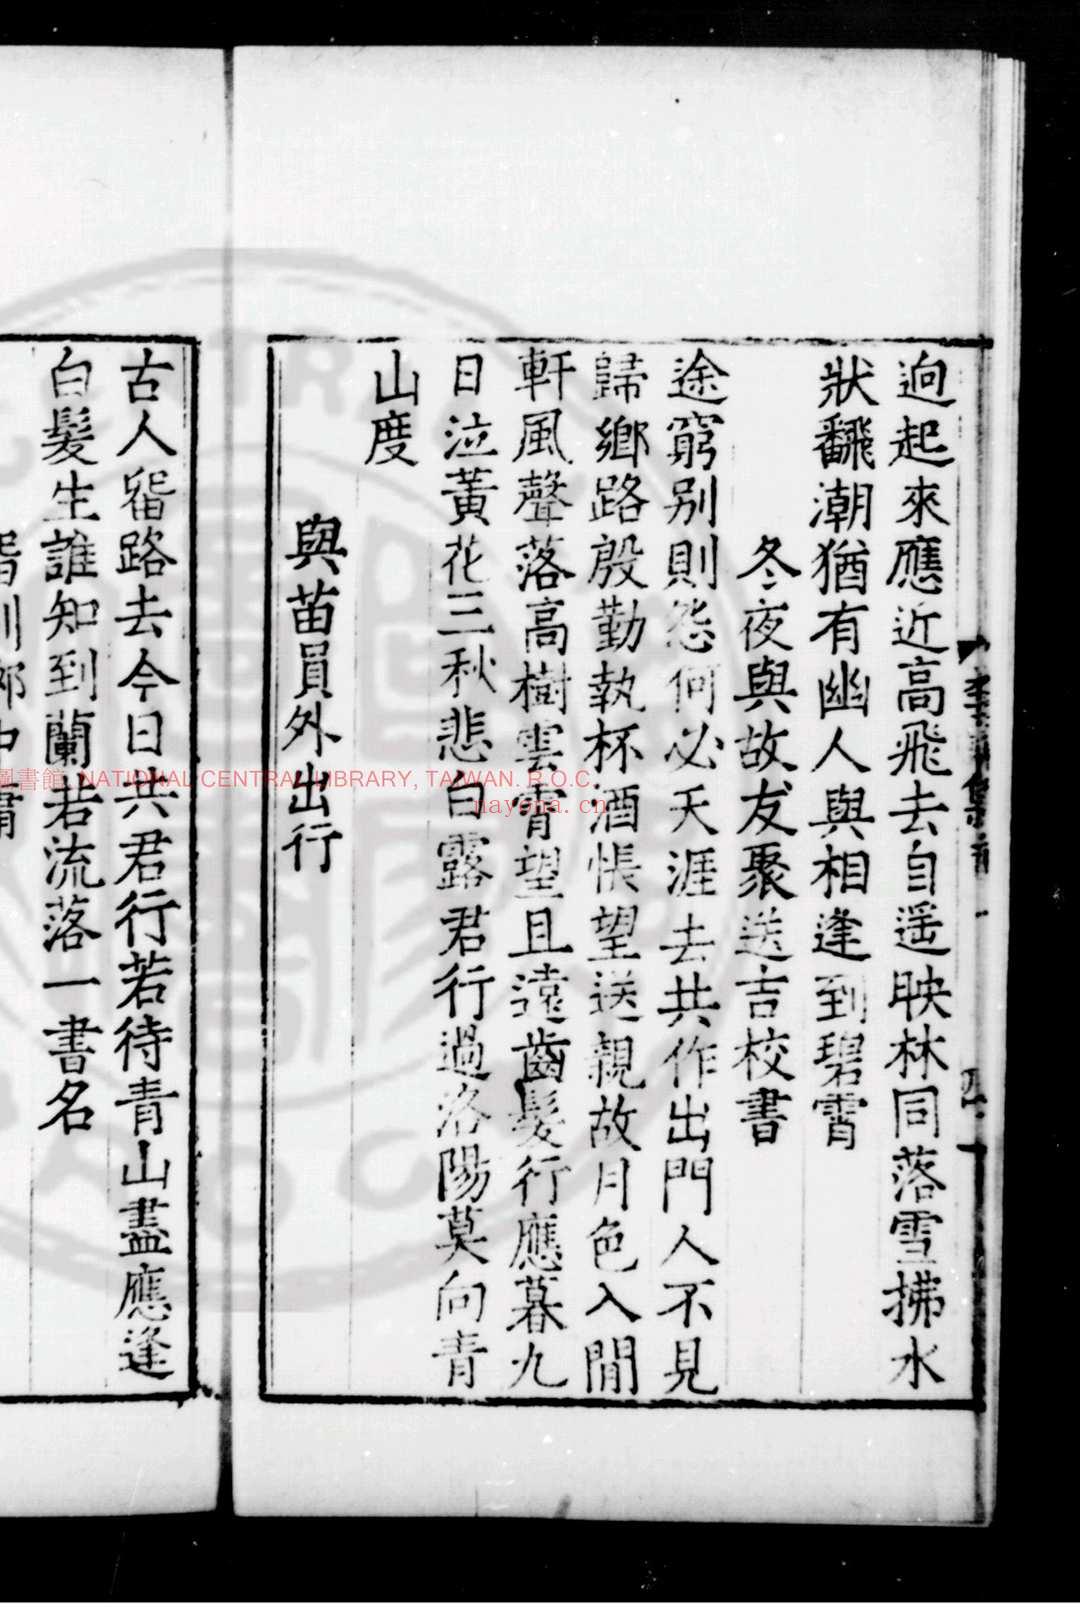 逈起來應近高飛去自遥映林同落雪拂水
狀飜潮猶有幽人與相逢到碧霄
冬夜與故友聚送吉校書
途窮别則怨何必天涯去共作出門人不見
歸鄉路殷勤執杯酒悵望送親故月色入閒
軒風聲落高樹雲霄望且遠齒髮行應暮九
日泣黃花三秋悲白露君行過洛陽莫向青
山度
與苗員外出行
古人畱路去今日共君行若待青山盡應逢
白髮生誰知到蘭若流落一書名
圖書館, NATIONAL CENTRAL LIBRARY, TAIWAN. R.O.C.
nayona.cn